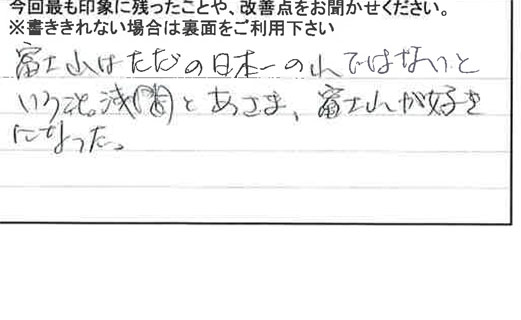 今回最も印象に残ったことや、改善点をお聞かせください。
※書ききれない場合は裏面をご利用下さい
富士山はただの日本一の山ではないと
いうこと。浅間とあさま、富士山が好き
になった。